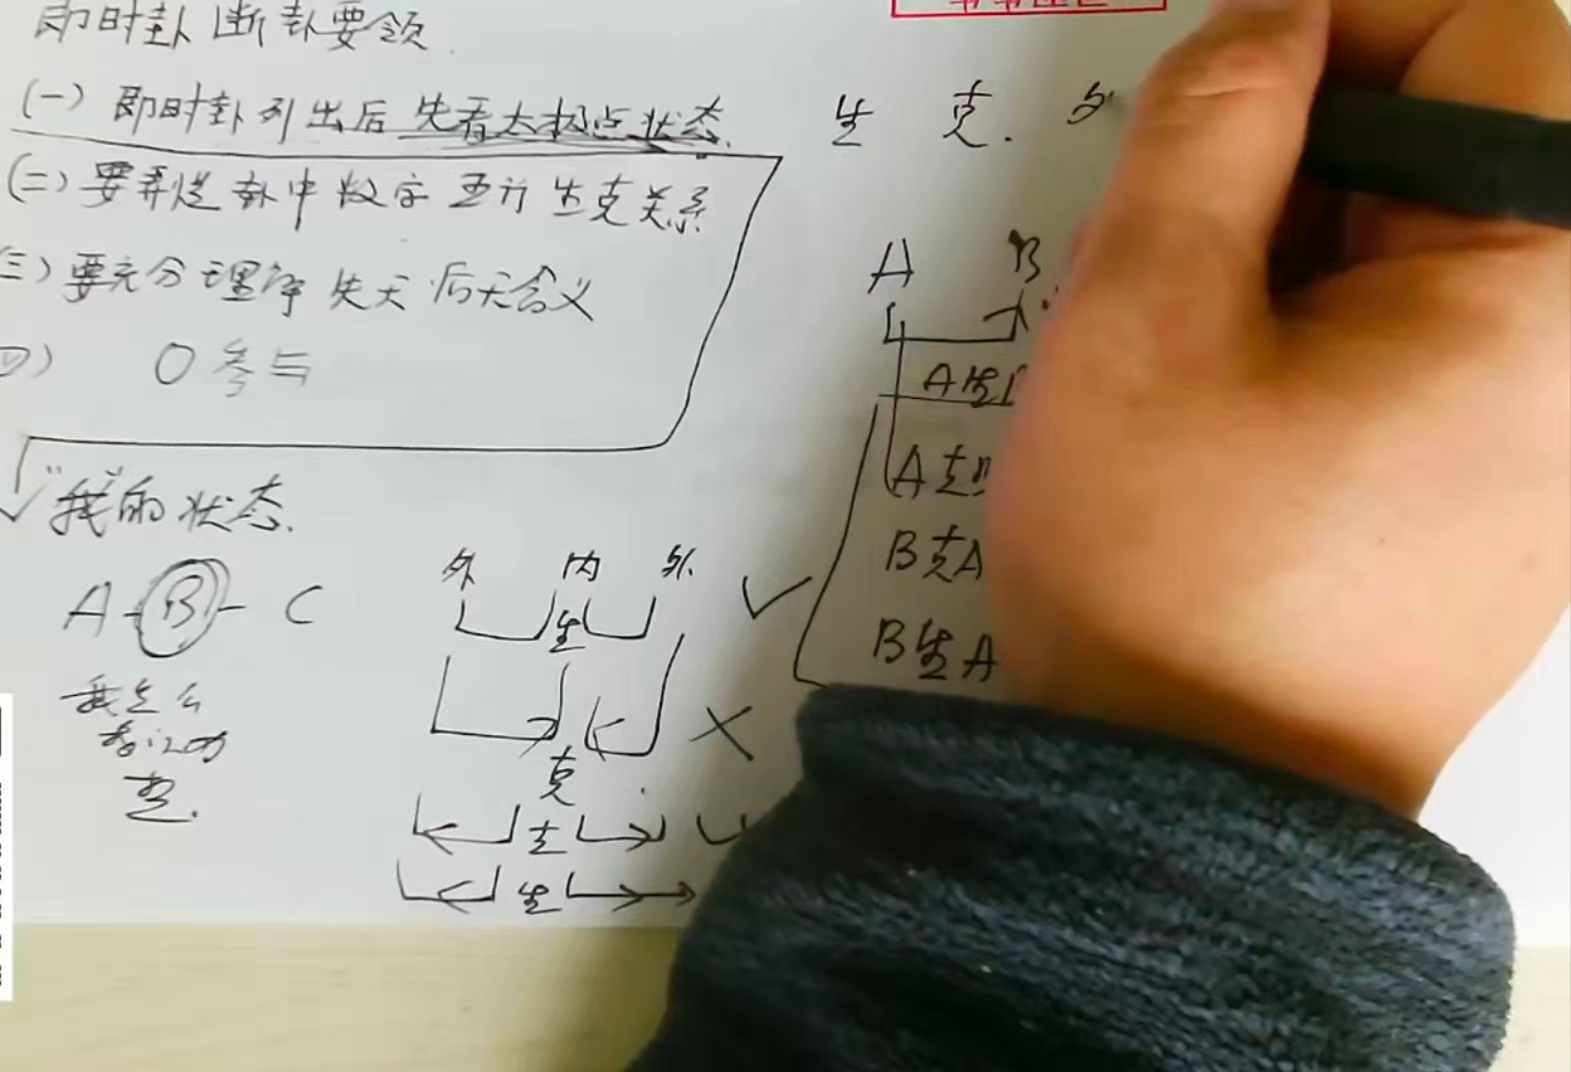 即时卦断卦要领
(一) 即时卦列出后先看太极点状态.
(二) 要弄清卦中数字五行生克关系
三) 要充分理解先天后天含义
四) 0参与
"我"的状态.
A-B-C
我怎么
外 内 外
生
克
克
生
生 克. 外
A B
A生
A克B
B克A
B生A